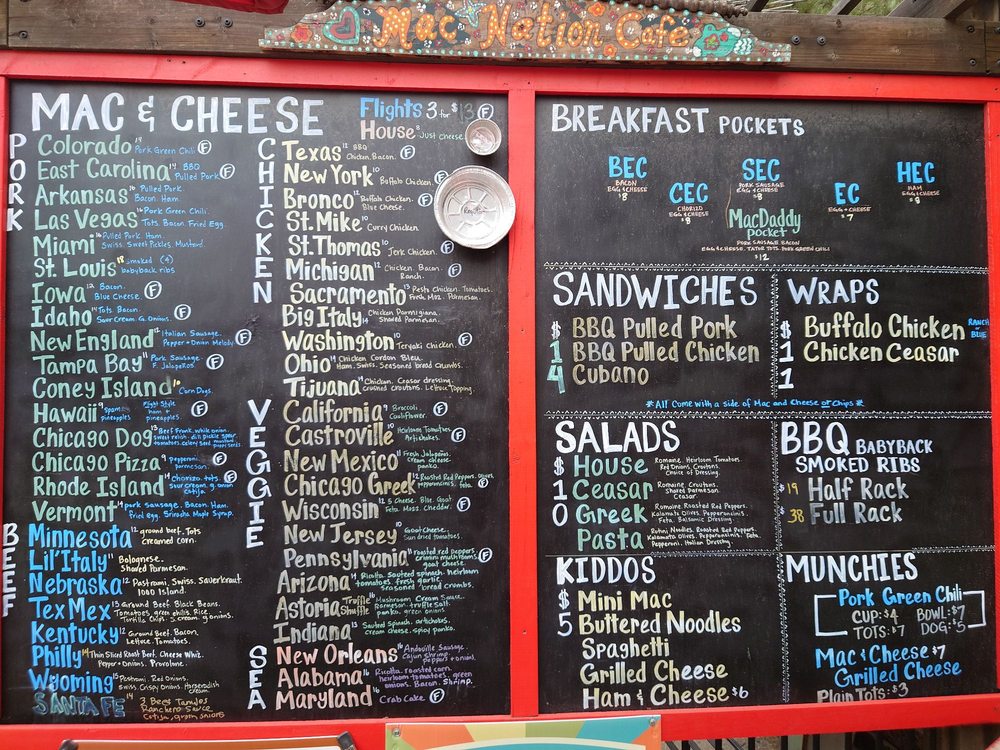 Mac Nation Cafe
MAC & CHEESE
Flights 3 for $13 (F)
House 8 Just cheese.
PORK
Colorado 14 Pork Green Chili (F)
East Carolina 14 BBQ Pulled Pork (F)
Arkansas 16 Pulled Pork. Bacon Ham.
Las Vegas 16 Pork Green Chili. Tots. Bacon. Fried Egg
Miami 16 Pulled Pork. Ham. Swiss. Sweet Pickles. Mustard.
St. Louis 18 smoked (4) babyback ribs
Iowa 12 Bacon. Blue Cheese. (F)
Idaho 14 Tots. Bacon. Sour Cream. G. Onions. (F)
New England 12 Italian Sausage. Pepper + Onion Melody (F)
Tampa Bay 11 Pork Sausage. F. Jalapeños. (F)
Coney Island 10 Corn Dogs.
Hawaii 9 Spam + pineapples Flight Style ham + pineapples. (F)
Chicago Dog 13 Beef Frank. white onion. sweet relish. dill pickle spear. tomatoes. celery seed. mustard. poppy seeds.
Chicago Pizza 9 pepperoni. parmesan. (F)
Rhode Island 14 Chorizo. tots. sour cream. g. onion cotija. (F)
Vermont 14 pork sausage. Bacon. Ham. fried egg. Sriracha Maple Syrup.
BEEF
Minnesota 12 ground beef. Tots creamed corn.
Lil' Italy 11 Bolognese. Shaved Parmesan.
Nebraska 12 Pastrami. Swiss. Sauerkraut. 1000 Island.
Tex Mex 15 Ground Beef. Black Beans. Tomatoes. green chilis. Rice. Tortilla Chips. S. cream. g. onions.
Kentucky 12 Ground Beef. Bacon. Lettuce. Tomatoes.
Philly 14 Thin Sliced Roast Beef. Cheese Whiz. Pepper + Onions. Provolone.
Wyoming 15 Pastrami. Red Onions. Swiss. Crispy Onions. Horseradish cream.
SANTA FE 14 3 Beef Tamales Ranchero Sauce Cotija, green onions
CHICKEN
Texas 12 BBQ Chicken. Bacon. (F)
New York 10 Buffalo Chicken. (F)
Bronco 12 Buffalo Chicken. Blue Cheese. (F)
St. Mike 10 Curry Chicken
St. Thomas 10 Jerk Chicken. (F)
Michigan 12 Chicken. Bacon. Ranch. (F)
Sacramento 13 Pesto Chicken. Tomatoes. Fresh Moz. Parmesan.
Big Italy 14 Chicken Parmigiana. Shaved Parmesan.
Washington 10 Teryaki Chicken. (F)
Ohio 14 Chicken Cordon Bleu. Ham. Swiss. Seasoned bread crumbs.
Tijuana 14 Chicken. Ceasar dressing. crushed croutons. Lettuce Topping.
VEGGIE
California 9 Broccoli Cauliflower. (F)
Castroville 10 Heirloom Tomatoes. Artichokes. (F)
New Mexico 11 Fresh Jalapeños. Cream cheese. panko. (F)
Chicago Greek 12 Roasted Red Peppers. Olives. pepperoncinis. feta. (F)
Wisconsin 12 5 Cheese. Blue. Goat. Feta. Moz. Cheddar. (F)
New Jersey 10 Goat Cheese. Sun dried tomatoes.
Pennsylvania 14 roasted red peppers. crimini mushrooms goat cheese. (F)
Arizona 14 Ricotta. Sauteed spinach. heirloom tomatoes. fresh garlic. seasoned bread crumbs.
Astoria Truffle Shuffle 16 Mushroom Cream Sauce. Parmesan. truffle salt. panko. green onions.
Indiana 13 Sauteed Spinach. artichokes. cream cheese. spicy panko.
SEA
New Orleans 16 Andouille Sausage. Cajun shrimp. peppers + onions.
Alabama 16 Ricotta. roasted corn. heirloom tomatoes. green onions. Bacon. Shrimp.
Maryland 16 Crab Cake (F)
BREAKFAST POCKETS
BEC BACON EGG & CHEESE $8
CEC CHORIZO EGG & CHEESE $8
SEC PORK SAUSAGE EGG & CHEESE $8
EC EGG + CHEESE $7
HEC HAM EGG & CHEESE $8
MacDaddy pocket
PORK SAUSAGE, BACON
EGG & CHEESE, TATOR TOTS, PORK GREEN CHILI
$12
SANDWICHES
$14
BBQ Pulled Pork
BBQ Pulled Chicken
Cubano
WRAPS
$11
Buffalo Chicken RANCH or BLUE
Chicken Ceasar
*All Come with a side of Mac and Cheese or Chips*
SALADS
$10
House Romaine. Heirloom Tomatoes. Red Onions. Croutons. Choice of Dressing.
Ceasar Romaine. Croutons. Shaved Parmesan. Ceasar.
Greek Romaine. Roasted Red Peppers. Kalamata Olives. Pepperoncinis. Feta. Balsamic Dressing.
Pasta Rotini Noodles. Roasted Red Peppers. Kalamata Olives. Pepperoncinis. Feta. Pepperoni. Italian Dressing.
BBQ BABYBACK
SMOKED RIBS
$19 Half Rack
$38 Full Rack
KIDDOS
$5
Mini Mac
Buttered Noodles
Spaghetti
Grilled Cheese
Ham & Cheese $6
MUNCHIES
Pork Green Chili
CUP: $4 BOWL: $7
TOTS: $7 DOG: $5
Mac & Cheese $7
Grilled Cheese
Plain Tots: $3